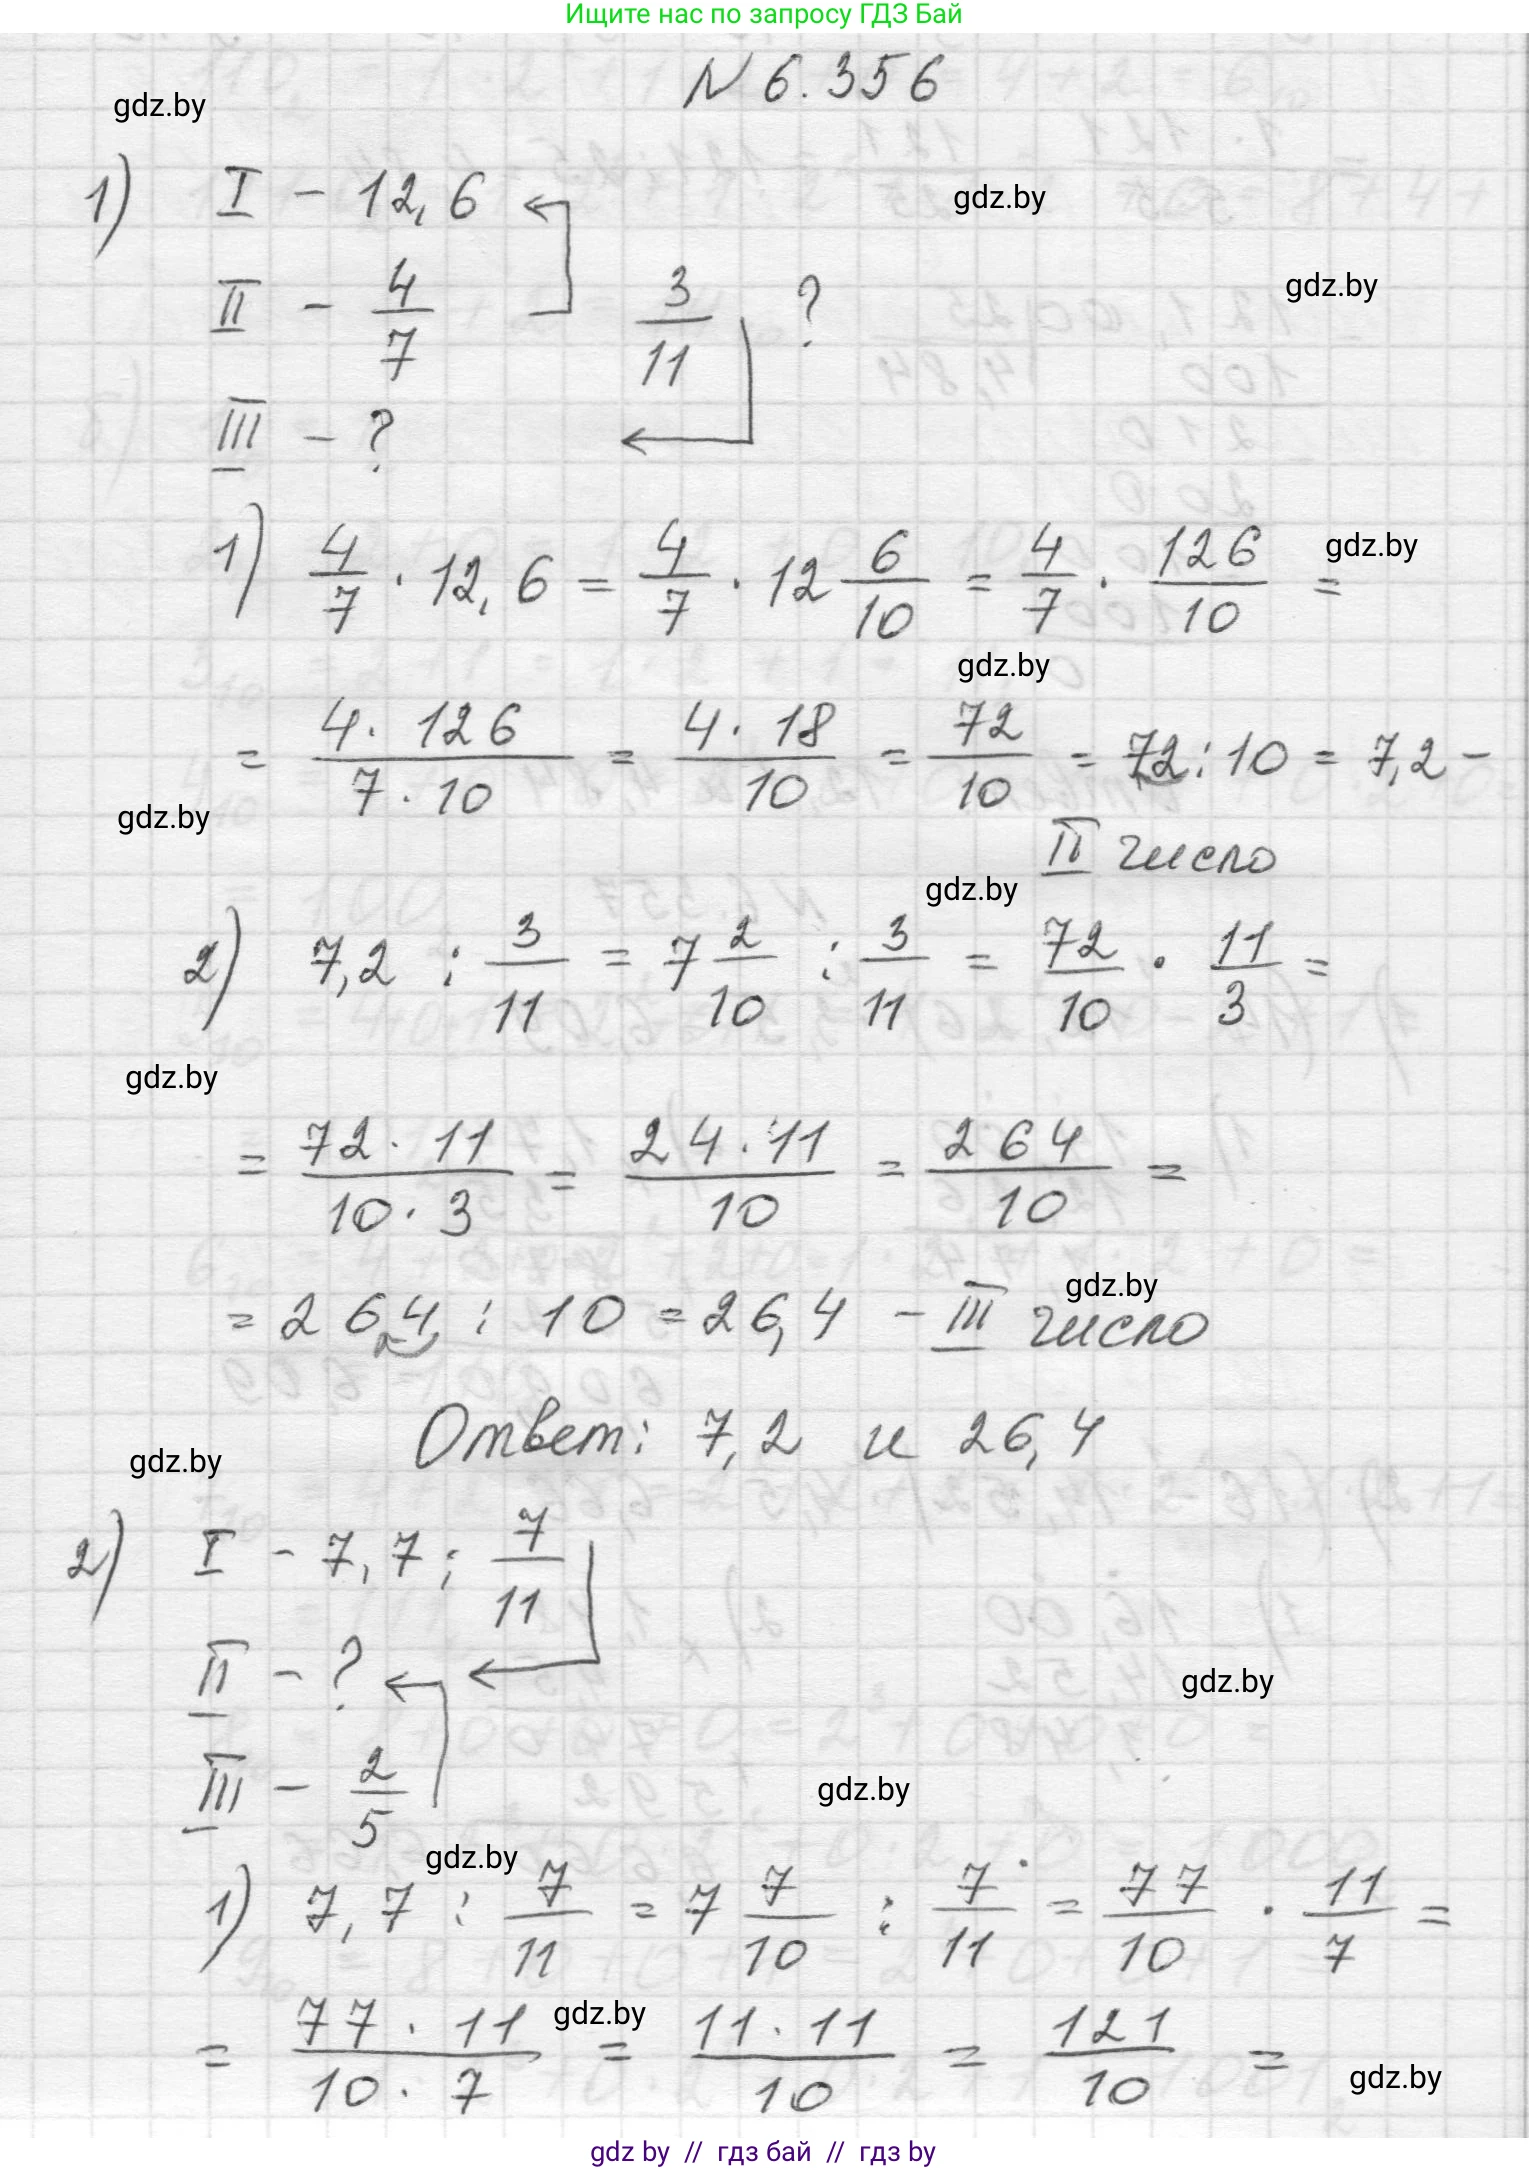 Ищите нас по запросу ГДЗ Бай
N 6.356
gdz.by
1) I - 12,6
gdz.by
II - 4/7 3/11 ?
gdz.by
III - ?
1) 4/7 · 12,6 = 4/7 · 12 6/10 = 4/7 · 126/10 =
gdz.by
gdz.by
= 4 · 126 / 7 · 10 = 4 · 18 / 10 = 72/10 = 72 : 10 = 7,2 -
gdz.by
II число
gdz.by
2) 7,2 : 3/11 = 7 2/10 : 3/11 = 72/10 · 11/3 =
gdz.by
= 72 · 11 / 10 · 3 = 24 · 11 / 10 = 264/10 =
gdz.by
= 264 : 10 = 26,4 - III число
Ответ: 7,2 и 26,4
gdz.by
2) I - 7,7 ; 7/11
II - ?
gdz.by
III - 2/5
gdz.by
gdz.by
1) 7,7 : 7/11 = 7 7/10 : 7/11 = 77/10 · 11/7 =
gdz.by
= 77 · 11 / 10 · 7 = 11 · 11 / 10 = 121/10 =
gdz.by
gdz by // гдз бай // гдз by